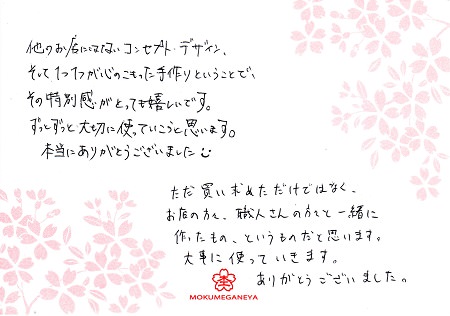 他のお店にはないコンセプト・デザイン、
そして1つ1つが心のこもった手作りということで、
その特別感がとっても嬉しいです。
ずっとずっと大切に使っていこうと思います。
本当にありがとうございました
ただ買い求めただけではなく、
お店の方々、職人さんの方々と一緒に
作ったもの、というものだと思います。
大事に使っていきます。
ありがとうございました。
MOKUMEGANEYA